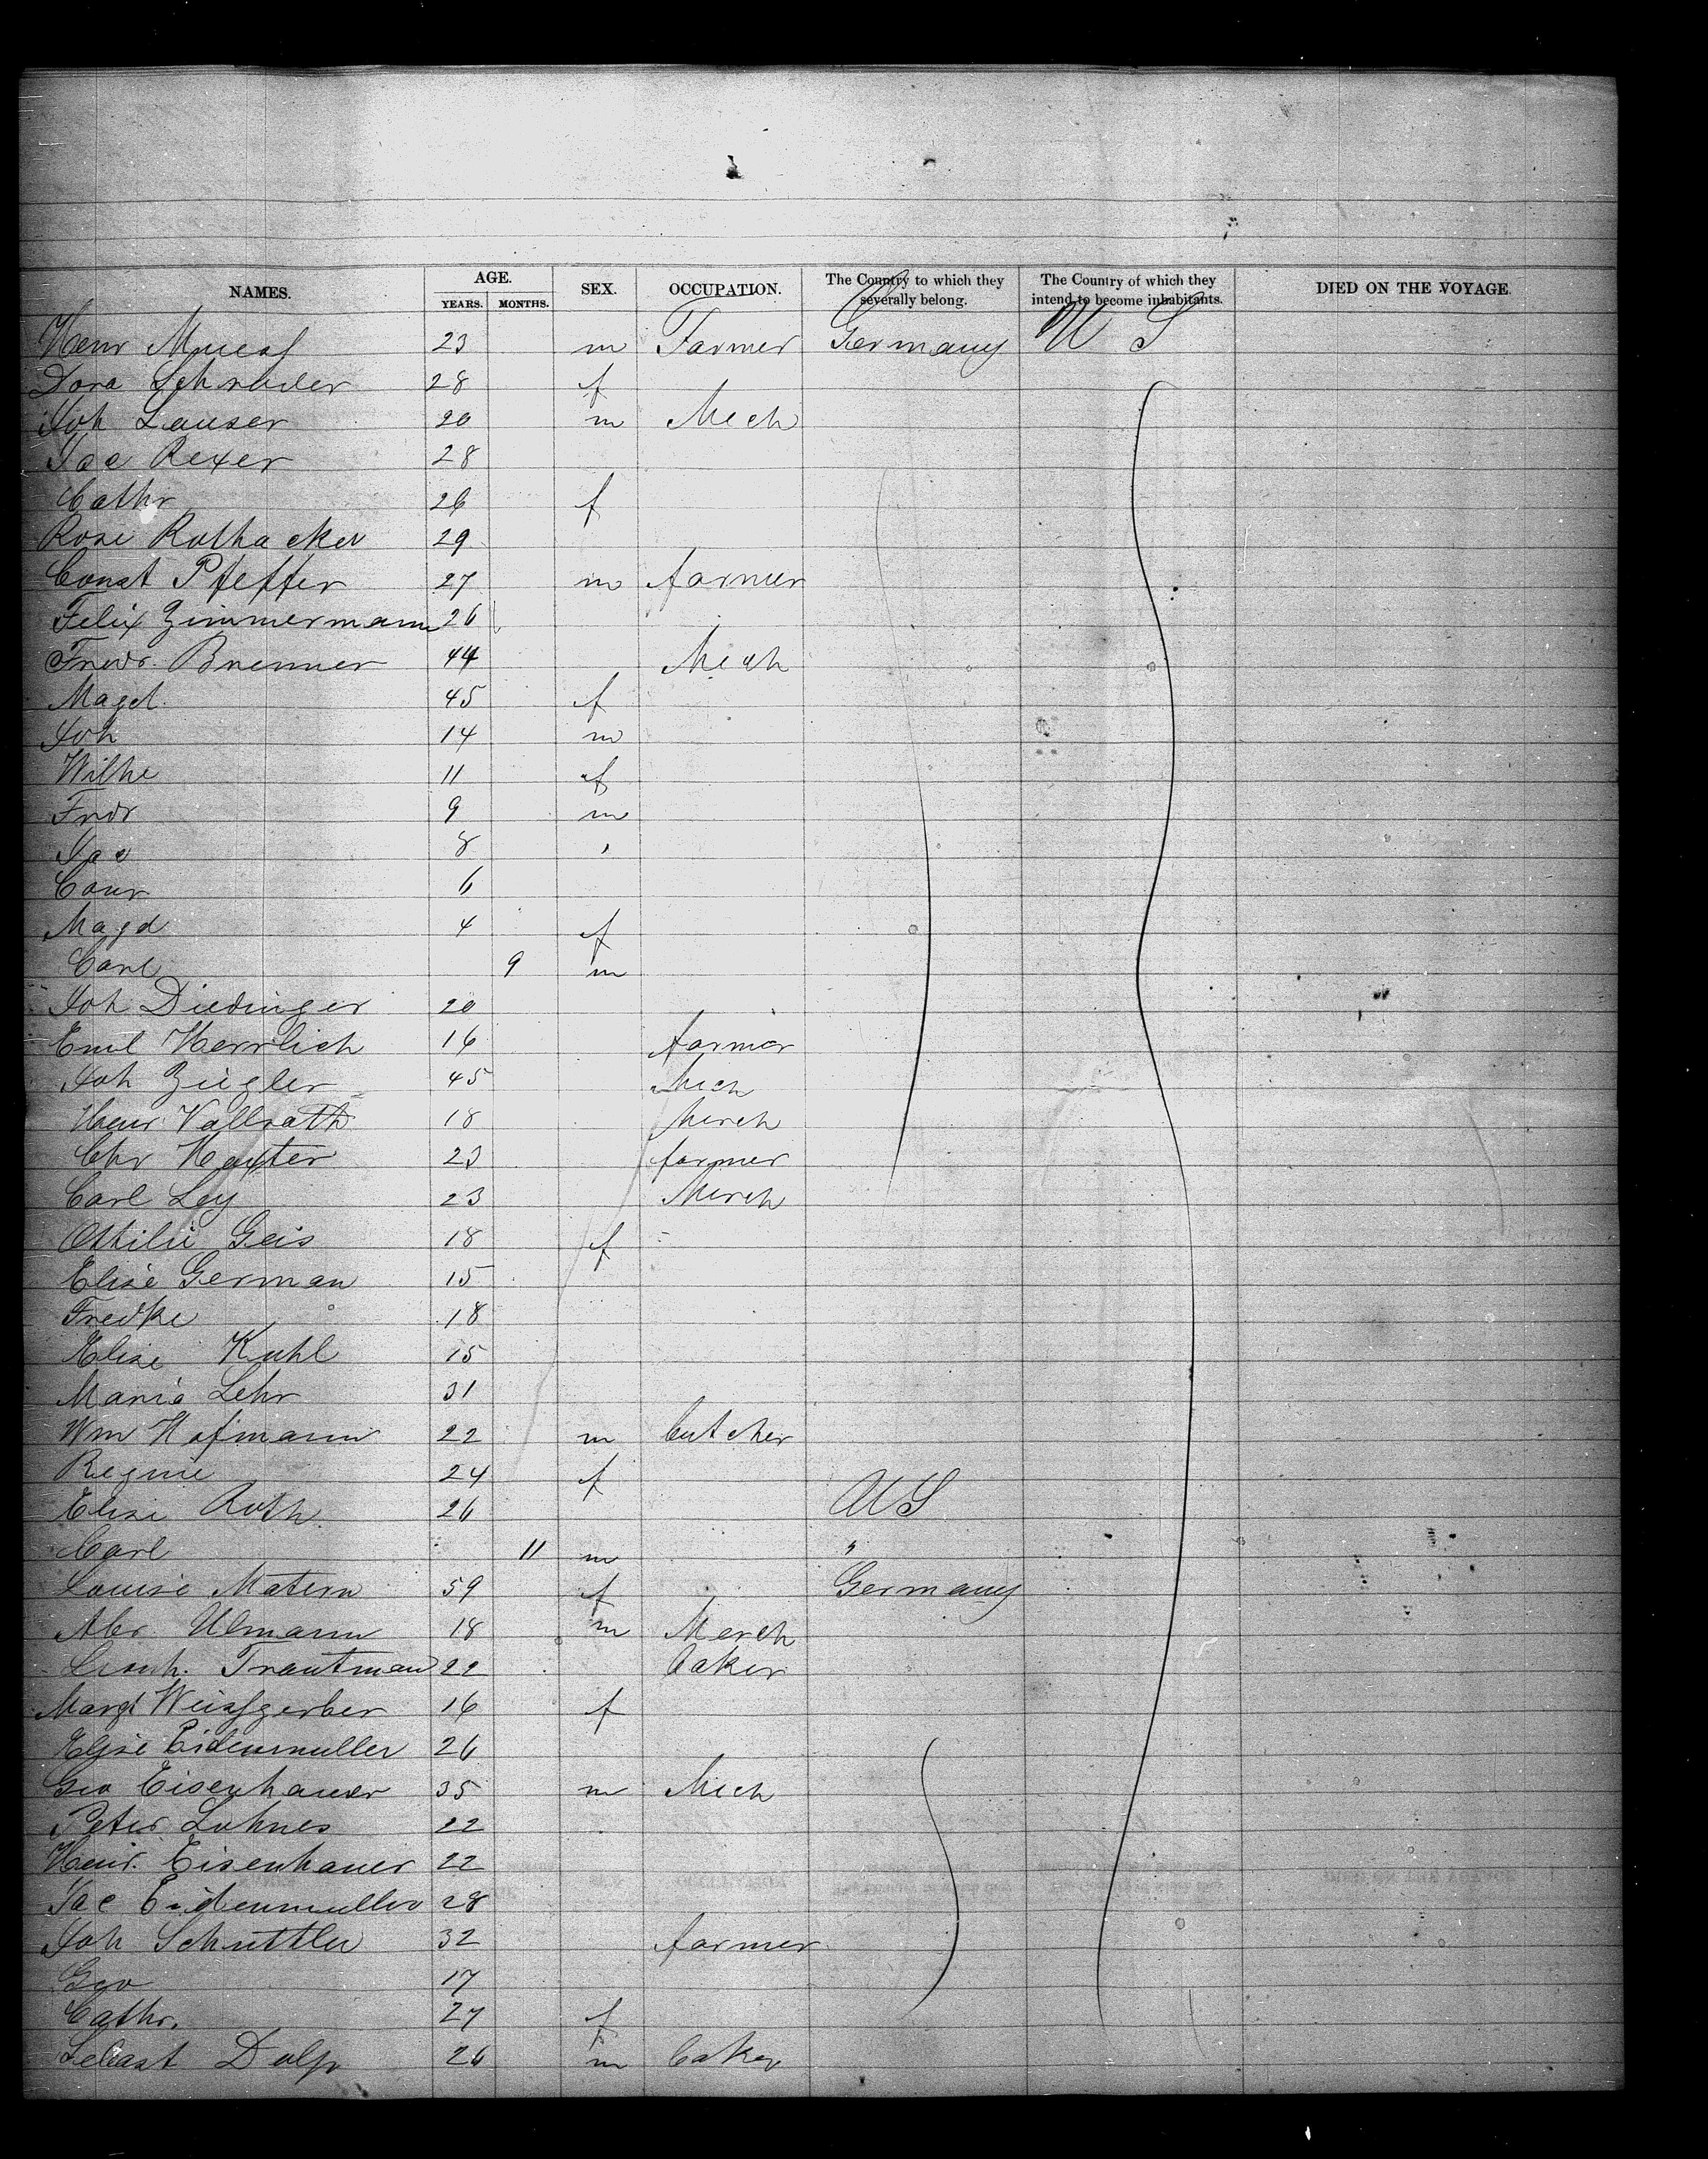 NAMES. AGE. YEARS. MONTHS. SEX. OCCUPATION. The Country to which they severally belong. The Country of which they intend to become inhabitants. DIED ON THE VOYAGE.
Henr 23 m Farmer Germany U S
Dora Schrader 28 f
Joh Lauser 20 m Mech
Jac Rexer 28
Cathr 26 f
Rosi Rothacker 29
Const Pfeffer 27 m farmer
Felix Zimmermann 26
Friedr. Brenner 44 Mech
Magd. 45 f
Joh 14 m
Wilhe 11 f
Fridr 9 m
Jac 8 "
Conr 6
Magd 4 f
Carl 9 m
Joh Diedinger 20
Emil Herrlich 16 farmer
Joh Ziegler 45 Mech
Henr Vollrath 18 Merch
Chr 23 farmer
Carl Ley 23 Merch
Ottilie Geis 18 f
Elise German 15
Fredke 18
Elise Kuhl 15
Maria Lehr 31
Wm Hofmann 22 m butcher
Regine 24 f
Elise Roth 26 U S
Carl 11 m "
Louise Matern 59 f Germany
Abr Ulmann 18 m Merch
Leonh. Trautman 22 baker
Margt Weissgerber 16 f
Elise Eidenmuller 26
Geo Eisenhauer 35 m Mech
Peter Lohnes 22
Henr. Eisenhauer 22
Jac Eidenmuller 28
Joh Schuttler 32 farmer
Geo 17
Cathr. 27 f
Sebast 26 m baker